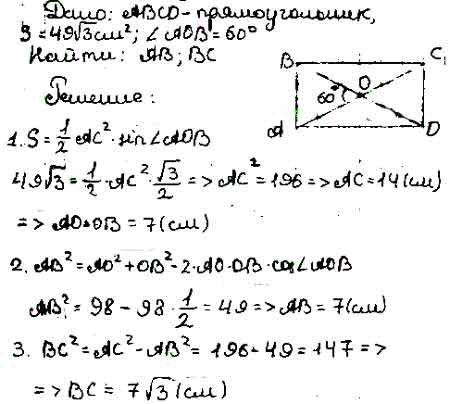 Дано: ABCD - прямоугольник,
S = 49√3 см²; ∠AOB = 60°
Найти: AB; BC
B C₁
O
60°
A D
Решение:
1. S = 1/2 AC² · sin∠AOB
49√3 = 1/2 · AC² · √3/2 => AC² = 196 => AC = 14 (см)
=> AO = OB = 7 (см)
2. AB² = AO² + OB² - 2 · AO · OB · cos∠AOB
AB² = 98 - 98 · 1/2 = 49 => AB = 7 (см)
3. BC² = AC² - AB² = 196 - 49 = 147 =>
=> BC = 7√3 (см)